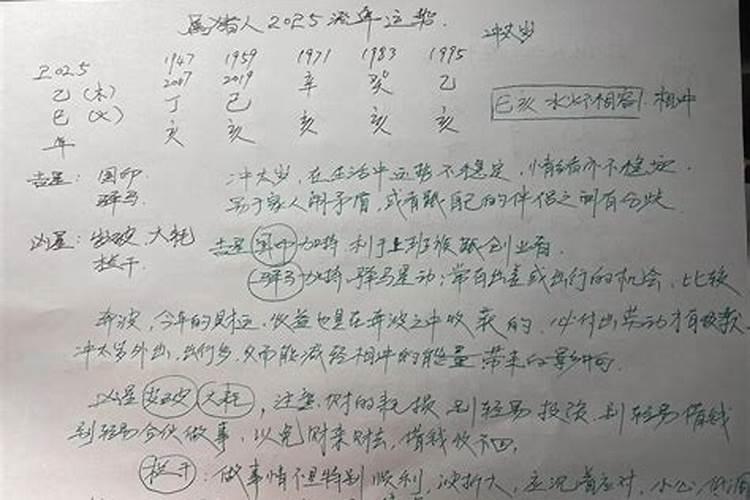 属猪人2025流年运势. 冲太岁
1947 1959 1971 1983 1995
2025 2007 2019 辛 癸 乙
乙(木) 丁 己
巳(火) 亥 亥 亥 亥 亥
年
巳亥 水火不相容 相冲
吉星: 国印 驿马
冲太岁, 在生活中运势不稳定, 情绪亦不稳定.
易于家人闹矛盾, 或有跟自己的伴侣之间有分歧
凶星: 岁破、大耗 栏干.
吉星国印加持 利于上班族跟创业者.
驿马加持, 驿马星动; 常有出差或出行的机会, 比较
奔波, 今年的财运, 收益也是在奔波之中收获的, 必付出劳动才有收获
冲太岁外出, 出行多, 反而能减轻相冲的能量 带来的影响.
凶星岁破 大耗, 注意财的耗损 别轻易投资, 别轻易借钱
别轻易合伙做事, 以免财来财去, 借钱收不回.
栏干: 做事情不是特别顺利, 波折大, 应沉着应对, 小心